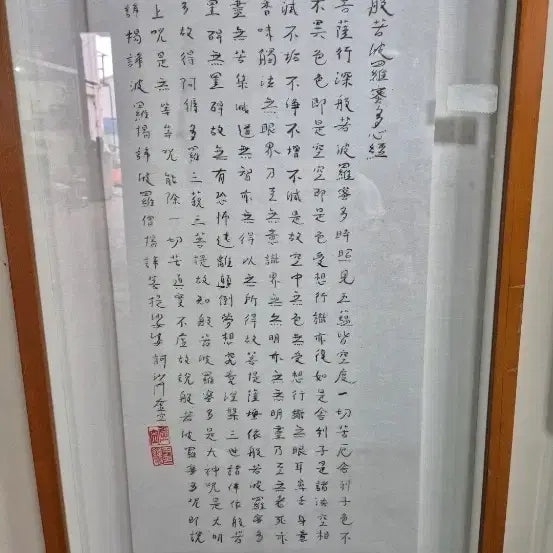 般若波羅蜜多心經
菩薩行深般若波羅蜜多時照見五蘊皆空度一切苦厄舍利子色不
不異色色即是空空即是色受想行識亦復如是舍利子是諸法空相
滅不垢不淨不增不減是故空中無色無受想行識無眼耳鼻舌身意
香味觸法無眼界乃至無意識界無無明亦無無明盡乃至無老死亦
盡無苦集滅道無智亦無得以無所得故菩提薩埵依般若波羅蜜多
罣碍無罣碍故無有恐怖遠離顛倒夢想究竟涅槃三世諸佛依般若
多故得阿耨多羅三藐三菩提故知般若波羅蜜多是大神呪是大明
上呪是無等等呪能除一切苦真實不虛故說般若波羅蜜多呪即說
諦揭諦波羅揭諦波羅僧揭諦菩提娑婆訶 沙門